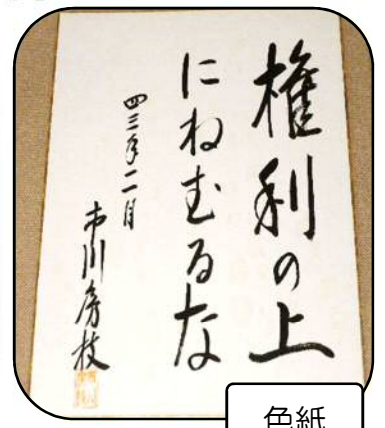 権利の上
にねむるな
四三年二月
市川房枝
色紙